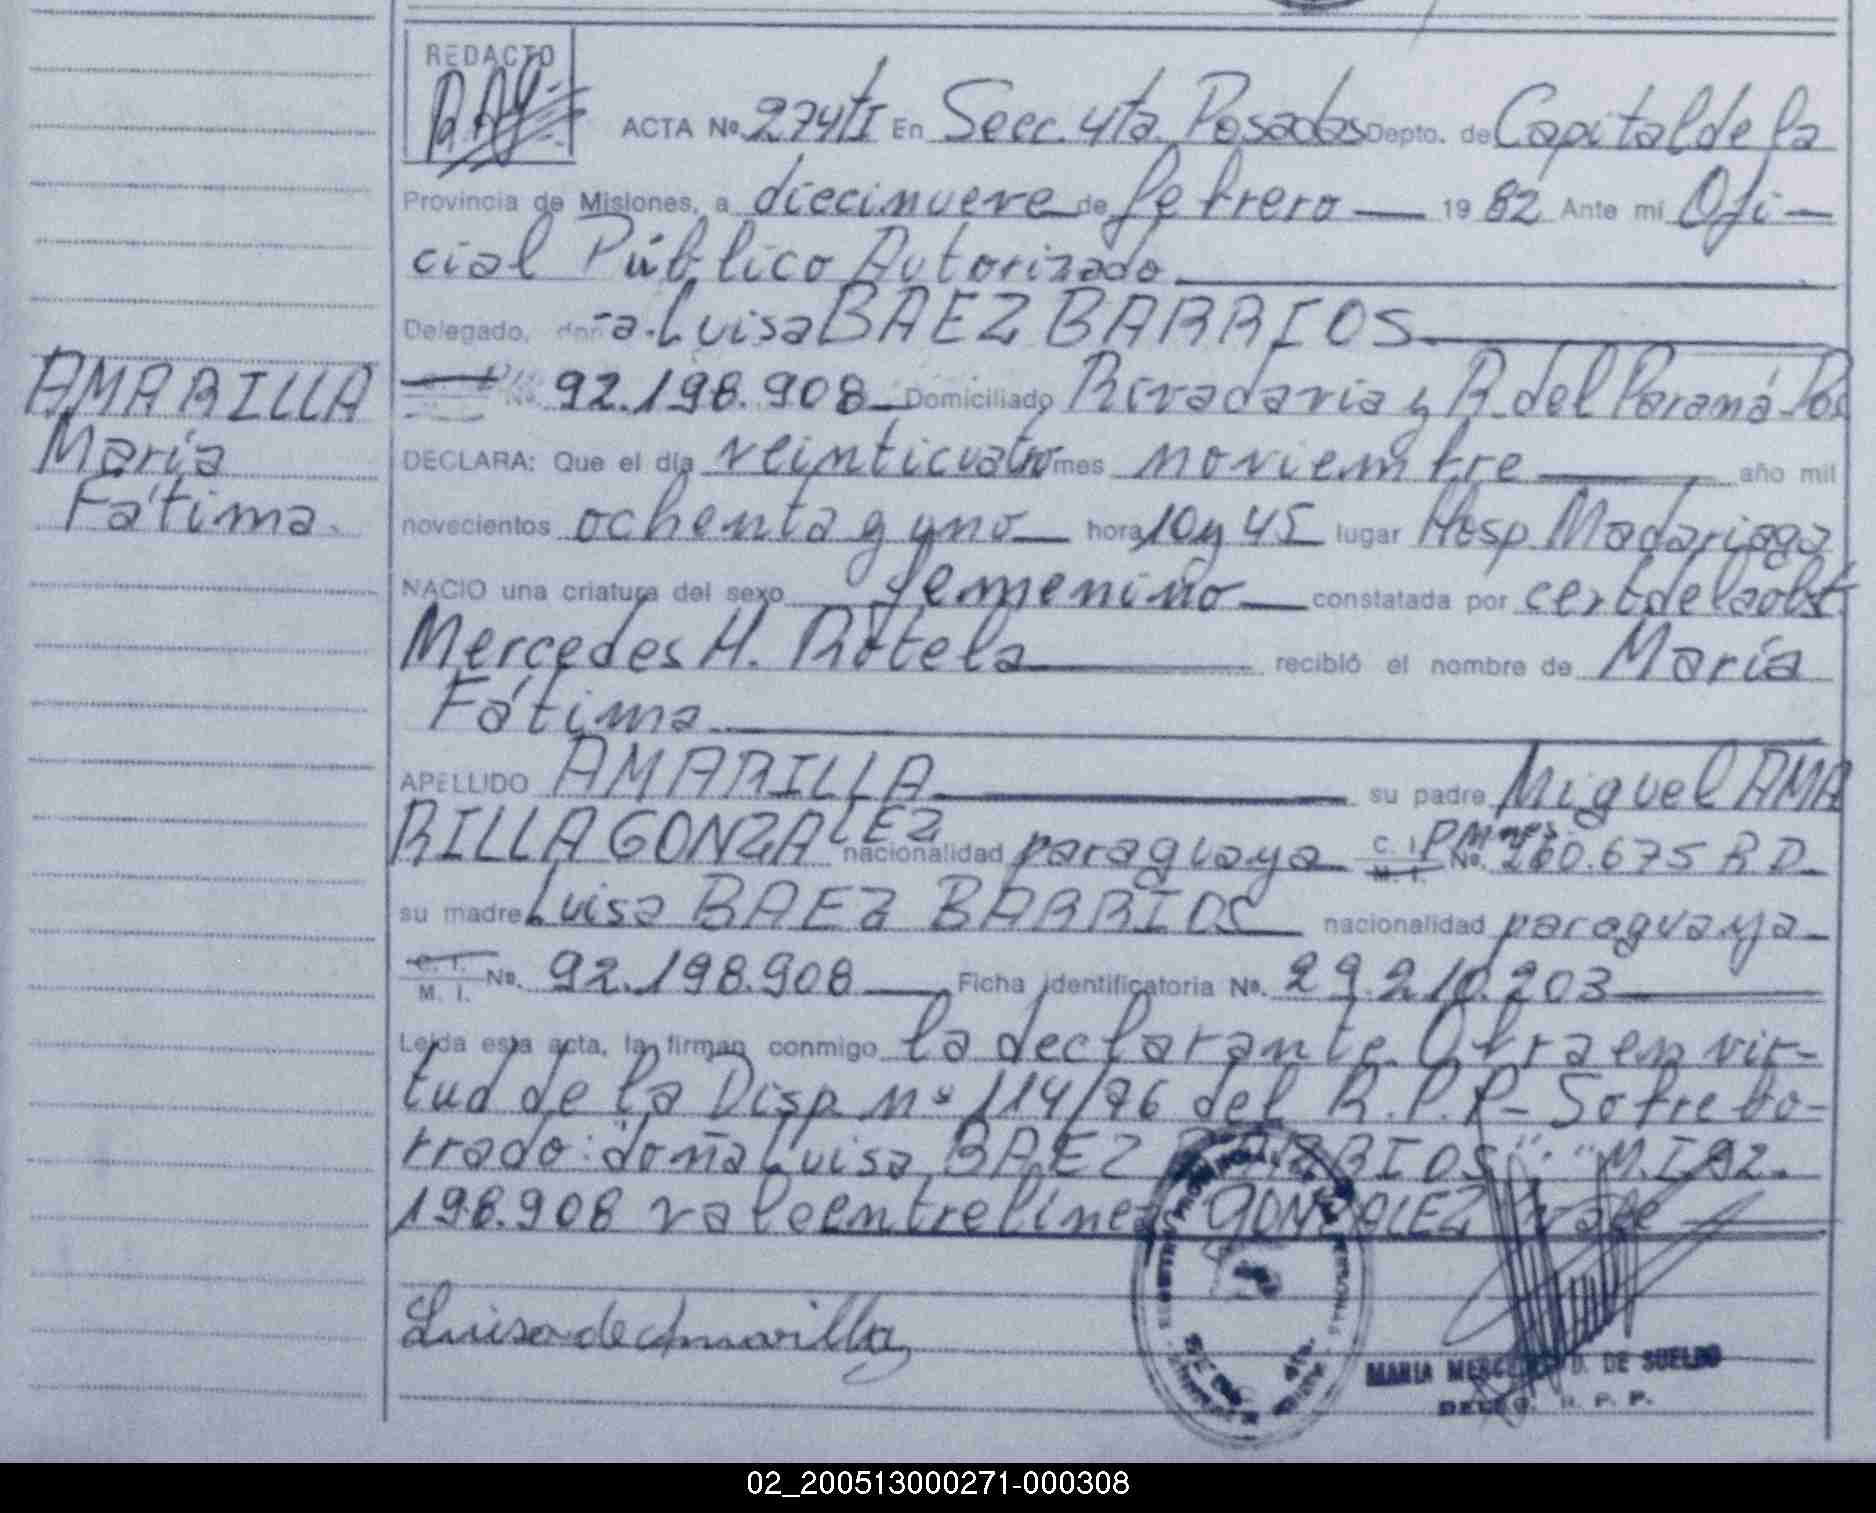 REDACTO
ACTA Nº 274 tI En Secc. 4ta. Posadas Depto. de Capital de la
Provincia de Misiones, a diecinueve de febrero — 19 82 Ante mí Ofi-
cial Público Autorizado
Delegado, doña Luisa BAEZ BARRIOS
Nº. 92.198.908 Domiciliado Rivadavia y R. del Paraná-Pos
AMARILLA
María
Fátima.
DECLARA: Que el día veinticuatro mes noviembre año mil
novecientos ochenta y uno hora 10 y 45 lugar Hosp. Madariaga
NACIO una criatura del sexo femenino constatada por cert de la obst
Mercedes H. Rotela recibió el nombre de María
Fátima
APELLIDO AMARILLA su padre Miguel AMA
RILLA GONZALEZ nacionalidad paraguaya C. I. P Mnes. Nº. 260.675 R D.
su madre Luisa BAEZ BARRIOS nacionalidad paraguaya
C. I. M. I. Nº. 92.198.908 Ficha identificatoria Nº. 29.210.203
Leída esta acta, la firman conmigo la declarante. Obra en vir-
tud de la Disp. nº 114/76 del R.P.P- Sobrebo-
rrado: doña Luisa BAEZ BARRIOS": "M.I 92.
198.908 vale entrelíneas GONZALEZ vale
Luisa de Amarilla
MARIA MERCEDES D. DE SUELDO
DELEG. R. P. P.
02_200513000271-000308